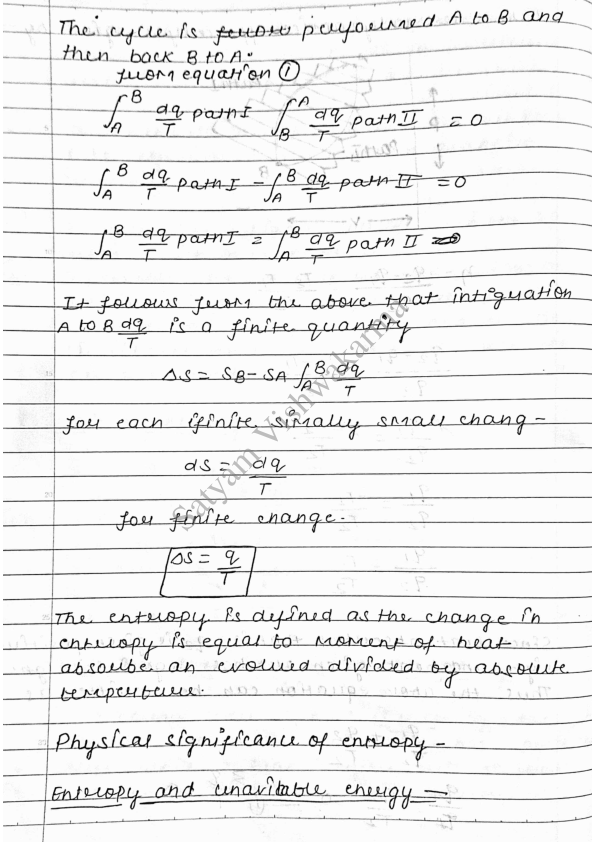 The cycle is perfourned A to B and
then back B to A.
from equation ①
∫_A^B dq/T path I ∫_B^A dq/T path II = 0
∫_A^B dq/T path I - ∫_A^B dq/T path II = 0
∫_A^B dq/T path I = ∫_A^B dq/T path II
It follows from the above that intigration
A to B dq/T is a finite quantity
ΔS = SB - SA ∫_A^B dq/T
for each ifinite simally small chang -
ds = dq/T
for finite change.
ΔS = q/T
The entropy is defined as the change in
entropy is equal to Moment of heat
absorbe an evolued divided by absolute
temperture.
Physical significance of entropy -
Entropy and unavitable energy —
Satyam Vishwakarma